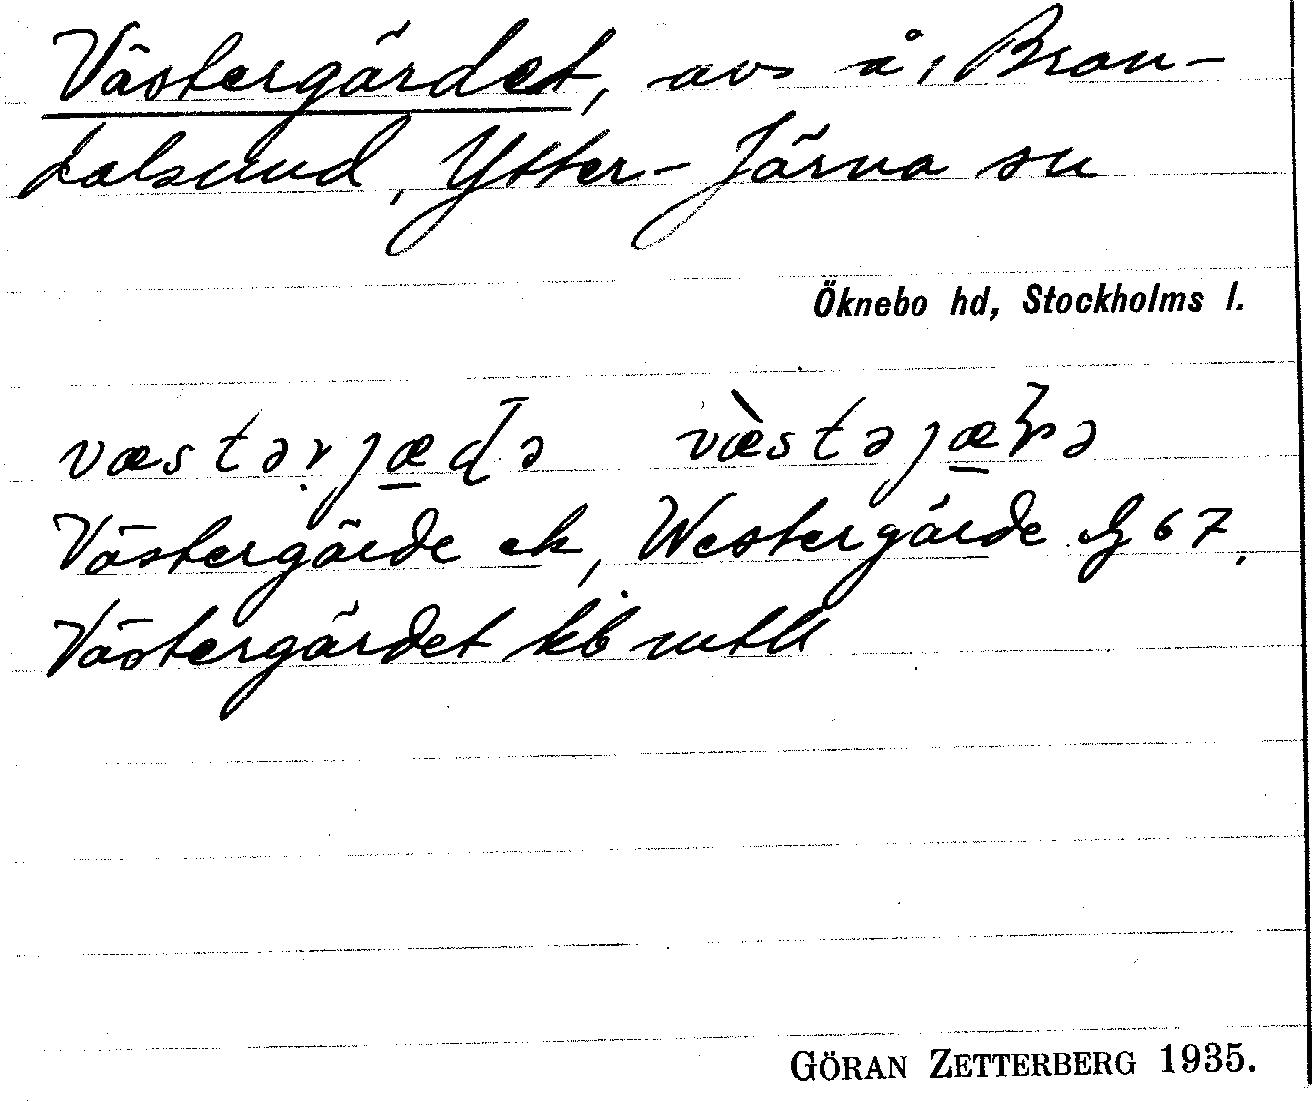 Västergärdet, avs å, Bran-
dalsund, Ytter-Järna sn
Öknebo hd, Stockholms l.
væstərjæḍə væ̀stəjæɽə
Västergärde ek, Westergärde Jg 67,
Västergärdet kb mtl
GÖRAN ZETTERBERG 1935.